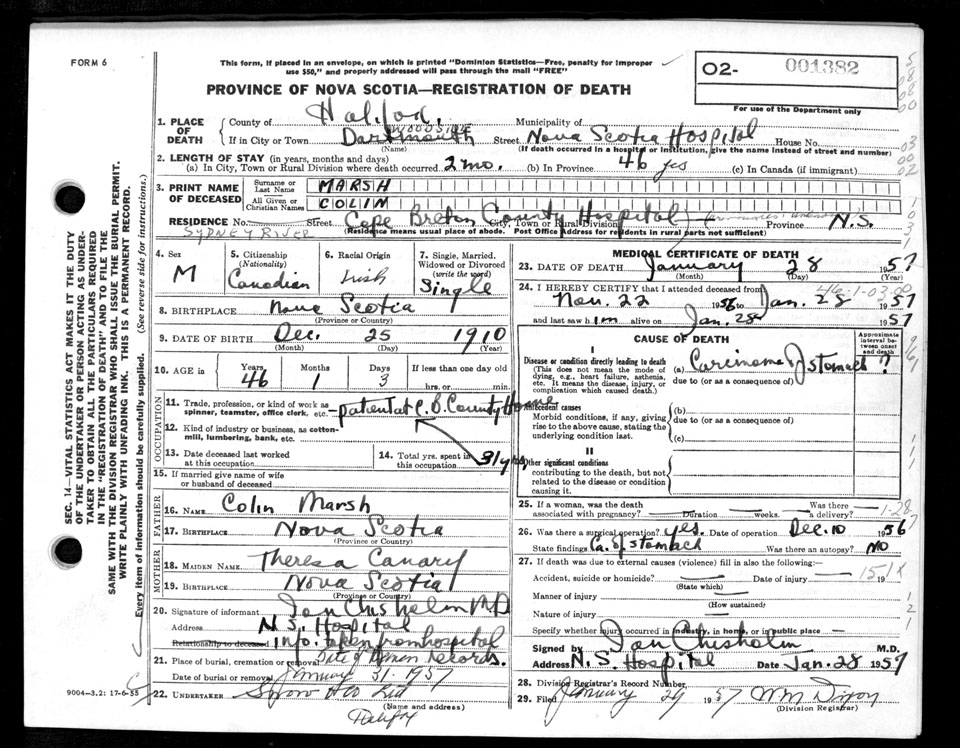 FORM 6
This form, if placed in an envelope, on which is printed "Dominion Statistics—Free, penalty for improper
use $50," and properly addressed will pass through the mail "FREE"
O2- 001382
For use of the Department only
PROVINCE OF NOVA SCOTIA—REGISTRATION OF DEATH
1. PLACE OF DEATH
County of Halifax Municipality of
If in City or Town Dartmouth Street Nova Scotia Hospital House No.
(Name) (If death occurred in a hospital or institution, give the name instead of street and number)
2. LENGTH OF STAY (in years, months and days)
(a) In City, Town or Rural Division where death occurred 2 mo. (b) In Province 46 yes (c) In Canada (if immigrant)
3. PRINT NAME OF DECEASED
Surname or Last Name MARSH
All Given or Christian Names COLIN
RESIDENCE No. Street Cape Breton County Hospital City, Town or Rural Division Province N.S.
SYDNEY RIVER (Residence means usual place of abode. Post Office address for residents in rural parts not sufficient)
4. Sex M
5. Citizenship (Nationality) Canadian
6. Racial Origin Irish
7. Single, Married, Widowed or Divorced (write the word) Single
8. BIRTHPLACE Nova Scotia
(Province or Country)
9. DATE OF BIRTH Dec. 25 1910
(Month) (Day) (Year)
10. AGE in Years 46 Months 1 Days 3 If less than one day old hrs. or min.
OCCUPATION
11. Trade, profession, or kind of work as spinner, teamster, office clerk, etc. patient at C. B. County Home
12. Kind of industry or business, as cotton-mill, lumbering, bank, etc.
13. Date deceased last worked at this occupation
14. Total yrs. spent in this occupation 31 yrs
15. If married give name of wife or husband of deceased
FATHER
16. NAME Colin Marsh
17. BIRTHPLACE Nova Scotia
(Province or Country)
MOTHER
18. MAIDEN NAME Theresa Canary
19. BIRTHPLACE Nova Scotia
(Province or Country)
20. Signature of informant Ian Chisholm MD
Address N. S. Hospital
Relationship to deceased Info. taken from hospital
records.
21. Place of burial, cremation or removal
Date of burial or removal January 31. 1957
22. UNDERTAKER Snow & Co Ltd
(Name and address)
Halifax
MEDICAL CERTIFICATE OF DEATH
23. DATE OF DEATH January 28 1957
(Month) (Day) (Year)
24. I HEREBY CERTIFY that I attended deceased from
Nov. 22 1956 to Jan. 28 1957
and last saw him alive on Jan. 28 1957
CAUSE OF DEATH
Approximate interval between onset and death
I
Disease or condition directly leading to death
(This does not mean the mode of dying, e.g., heart failure, asthenia, etc. It means the disease, injury, or complication which caused death.)
(a) Carcinoma of stomach ?
due to (or as a consequence of)
Antecedent causes
Morbid conditions, if any, giving rise to the above cause, stating the underlying condition last.
(b)
due to (or as a consequence of)
(c)
II
Other significant conditions
contributing to the death, but not related to the disease or condition causing it.
25. If a woman, was the death associated with pregnancy? Duration weeks. Was there a delivery?
26. Was there a surgical operation? yes. Date of operation Dec. 10 1956
State findings Ca. of stomach Was there an autopsy? No
27. If death was due to external causes (violence) fill in also the following:—
151X
Accident, suicide or homicide? Date of injury 19
(State which)
Manner of injury
(How sustained)
Nature of injury
Specify whether injury occurred in industry, in home, or in public place
Signed by Ian Chisholm M.D.
Address N. S. Hospital Date Jan. 28 1957
28. Division Registrar's Record Number
29. Filed January 29 1957 Wm Dixon
(Division Registrar)
SEC. 14—VITAL STATISTICS ACT MAKES IT THE DUTY
OF THE UNDERTAKER OR PERSON ACTING AS UNDER-
TAKER TO OBTAIN ALL THE PARTICULARS REQUIRED
IN THE "REGISTRATION OF DEATH" AND TO FILE THE
SAME WITH THE DIVISION REGISTRAR WHO SHALL ISSUE THE BURIAL PERMIT.
WRITE PLAINLY WITH UNFADING INK. THIS IS A PERMANENT RECORD.
Every item of information should be carefully supplied. (See reverse side for instructions.)
9004—3.2: 17-6-55